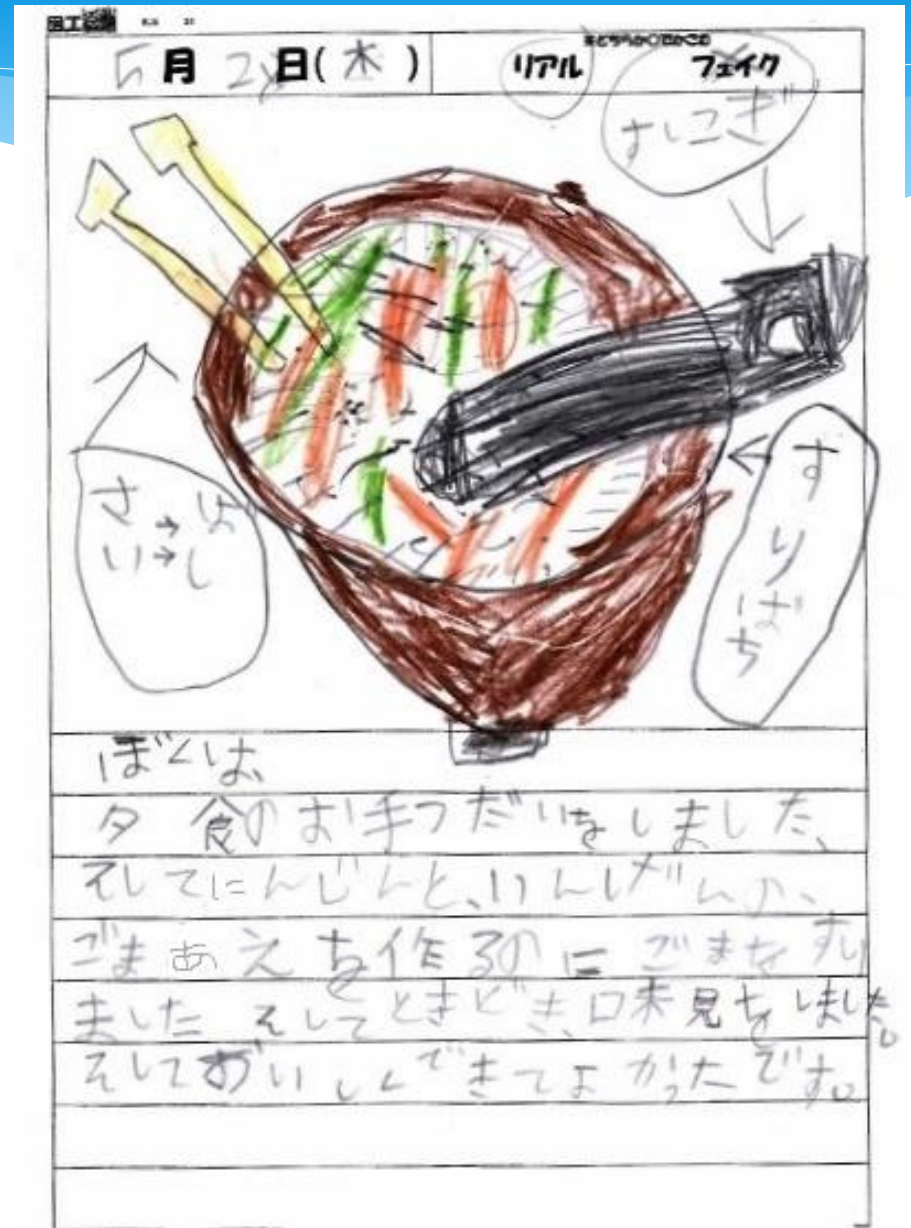 図工
※どちらか○でかこむ
5月2 日(木)
リアル
フェイク
すしこぎ
さいばし
すりばち
ぼくは、
夕食のお手つだいをしました、
そしてにんじんと、いんげんの、
ごまあえを作るのにごまをすり
ました そしてときどき、口未見をしました。
そしておいしくできてよかったです。